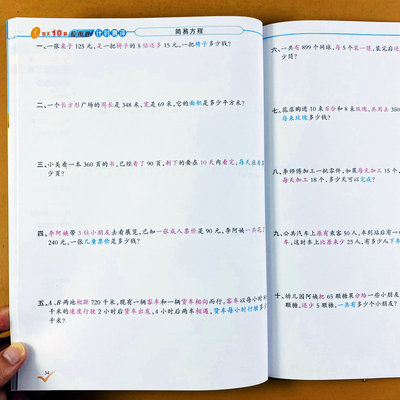 每天10分 应用题 计时测评
简易方程
一、一张桌子 125 元,是一把椅子的 5 倍还多 15 元,一把椅子多少钱?
二、一个长方形广场的周长是 348 米,宽是 69 米,它的面积是多少平方米?
三、小美看一本 360 页的书,已经看了 90 页,剩下的要在 10 天内看完,每天应看多
少页?
四、李阿姨带 3 位小朋友去看展览,已知一张成人票价是 90 元,李阿姨一共花了
240 元,一张儿童票价是多少钱?
五、A、B 两地相距 720 千米,现有一辆客车和一辆货车相向而行,客车以每小时
千米的速度行驶 2 小时后货车出发,4 小时后两车相遇,货车每小时行驶多少
千米?
34
六、一共有 899 个网球,每 5 个装一筒,装完后还
七、花店购进 10 束百合和 8 束玫瑰,共用去 350
每束玫瑰多少钱?
八、李师傅加工一批零件,如果每天加工 15 个
每天加工 18 个,多少天可以完成?
九、公共汽车上原有乘客 50 人,车到站后有一
车,这时车上比原来少 23 人,有多少人下车
十、幼儿园阿姨把 65 颗糖果分给一些小朋友
颗糖,还少 5 颗糖,一共有多少个小朋友?